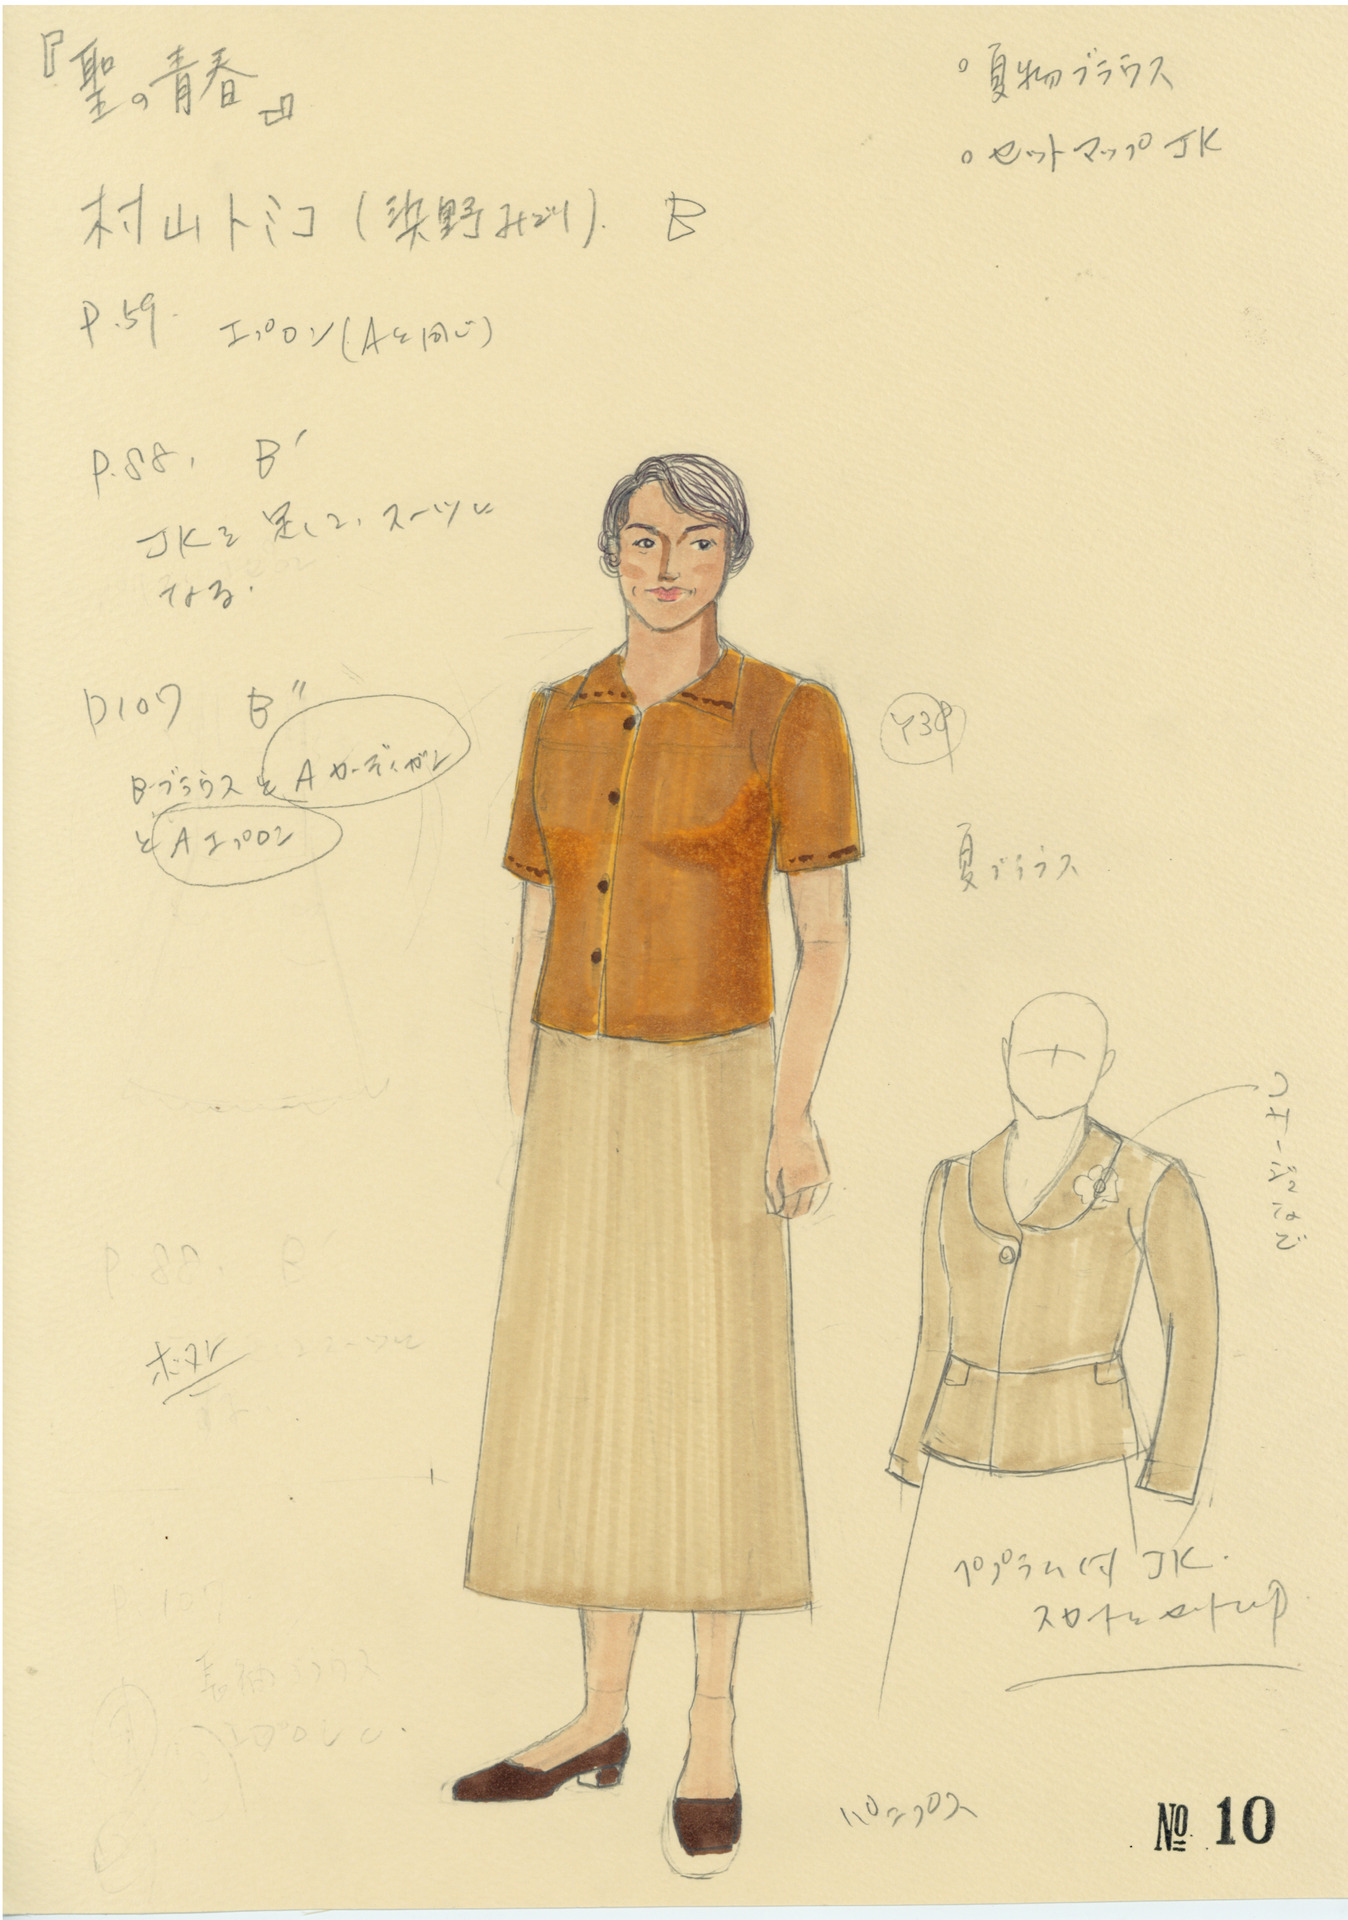 『聖の青春』
○ 夏物ブラウス
○ セットアップ JK
村山トミコ (染野みどり). B
P.59. エプロン(Aと同じ)
P.88. B′
JKを足して、スーツに
なる.
P107 B″
Bブラウスと Aカーディガン
と Aエプロン
Y38
夏ブラウス
P.88. B
コサージュなど
P.107
長袖ブラウス
ペプラム付 JK.
スカートとセットup
パンプス
No. 10